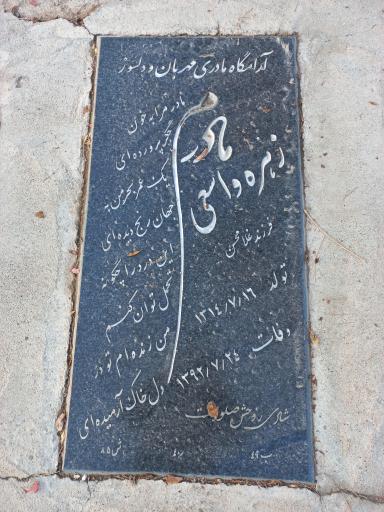 آرامگاه مادری مهربان و دلسوز
مادرم
زهره واسعی
فرزند غلامحسن
تولد ۱۳۱۴/۷/۱۶
وفات ۱۳۹۲/۷/۲۴
مادر مرا به خون جگر پرورده ای
یک عمر بهر من به جهان رنج دیده ای
این درد را چگونه تحمل توان کنم
من زنده ام تو در دل خاک آرمیده ای
شادی روحش صلوات